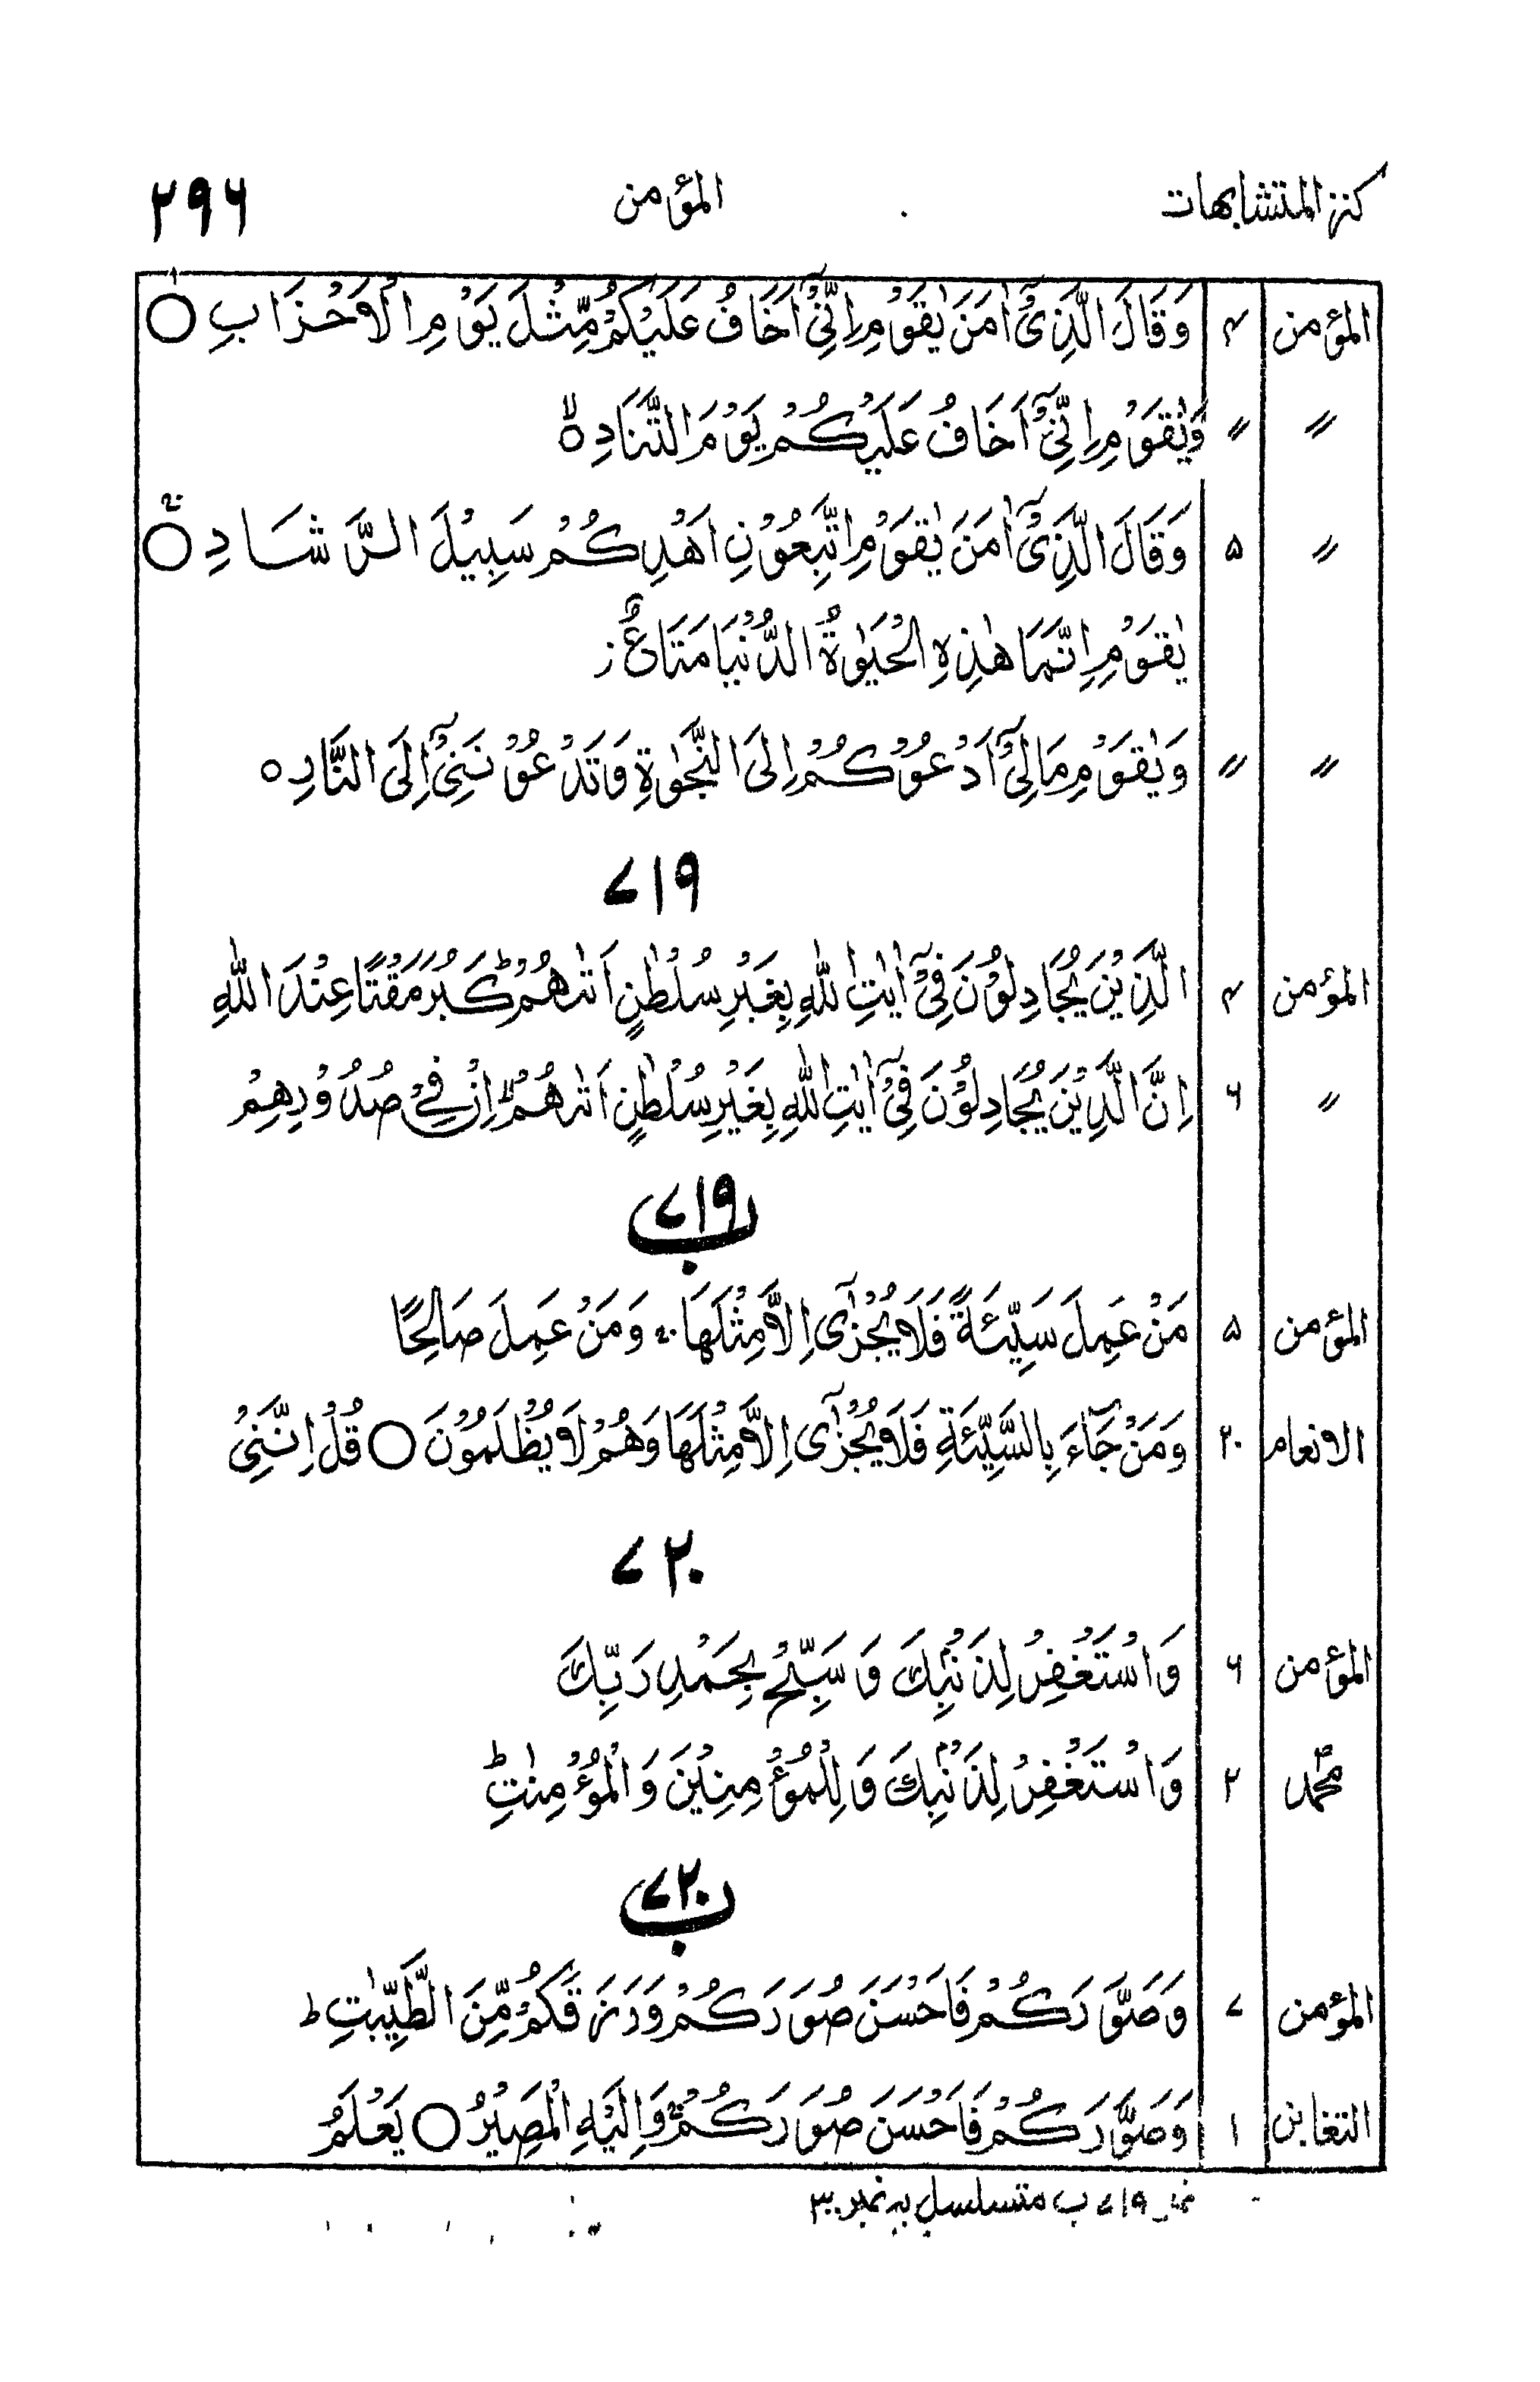 كنز المتشابهات المؤمن ۲۹۶
المؤمن ۴ وَقَالَ الَّذِیْٓ اٰمَنَ یٰقَوْمِ اِنِّیْٓ اَخَافُ عَلَیْكُمْ مِّثْلَ یَوْمِ الْاَحْزَابِ ○
〃 〃 وَیٰقَوْمِ اِنِّیْٓ اَخَافُ عَلَیْكُمْ یَوْمَ التَّنَادِ ○ۙ
〃 ۵ وَقَالَ الَّذِیْٓ اٰمَنَ یٰقَوْمِ اتَّبِعُوْنِ اَهْدِكُمْ سَبِیْلَ الرَّشَادِ ○ۚ
یٰقَوْمِ اِنَّمَا هٰذِهِ الْحَیٰوةُ الدُّنْیَا مَتَاعٌ ز
〃 〃 وَیٰقَوْمِ مَالِیْٓ اَدْعُوْكُمْ اِلَی النَّجٰوةِ وَتَدْعُوْنَنِیْٓ اِلَی النَّارِ ○
۷۱۹
المؤمن ۴ الَّذِیْنَ یُجَادِلُوْنَ فِیْٓ اٰیٰتِ اللّٰهِ بِغَیْرِ سُلْطٰنٍ اَتٰىهُمْ ؕ كَبُرَ مَقْتًا عِنْدَ اللّٰهِ
〃 ۶ اِنَّ الَّذِیْنَ یُجَادِلُوْنَ فِیْٓ اٰیٰتِ اللّٰهِ بِغَیْرِ سُلْطٰنٍ اَتٰىهُمْ ۙ اِنْ فِیْ صُدُوْرِهِمْ
۷۱۹ ب
المؤمن ۵ مَنْ عَمِلَ سَیِّئَةً فَلَا یُجْزٰٓی اِلَّا مِثْلَهَا ۚ وَمَنْ عَمِلَ صَالِحًا
الانعام ۲۰ وَمَنْ جَآءَ بِالسَّیِّئَةِ فَلَا یُجْزٰٓی اِلَّا مِثْلَهَا وَهُمْ لَا یُظْلَمُوْنَ ○ قُلْ اِنَّنِیْ
۷۲۰
المؤمن ۶ وَاسْتَغْفِرْ لِذَنْۢبِكَ وَسَبِّحْ بِحَمْدِ رَبِّكَ
محمدؐ ۲ وَاسْتَغْفِرْ لِذَنْۢبِكَ وَلِلْمُؤْمِنِیْنَ وَالْمُؤْمِنٰتِ ؕ
۷۲۰ ب
المؤمن ۷ وَصَوَّرَكُمْ فَاَحْسَنَ صُوَرَكُمْ وَرَزَقَكُمْ مِّنَ الطَّیِّبٰتِ ط
التغابن ۱ وَصَوَّرَكُمْ فَاَحْسَنَ صُوَرَكُمْ ۚ وَاِلَیْهِ الْمَصِیْرُ ○ یَعْلَمُ
نمبر ۷۱۹ ب متسلسل بہ نمبر ۳۰۰